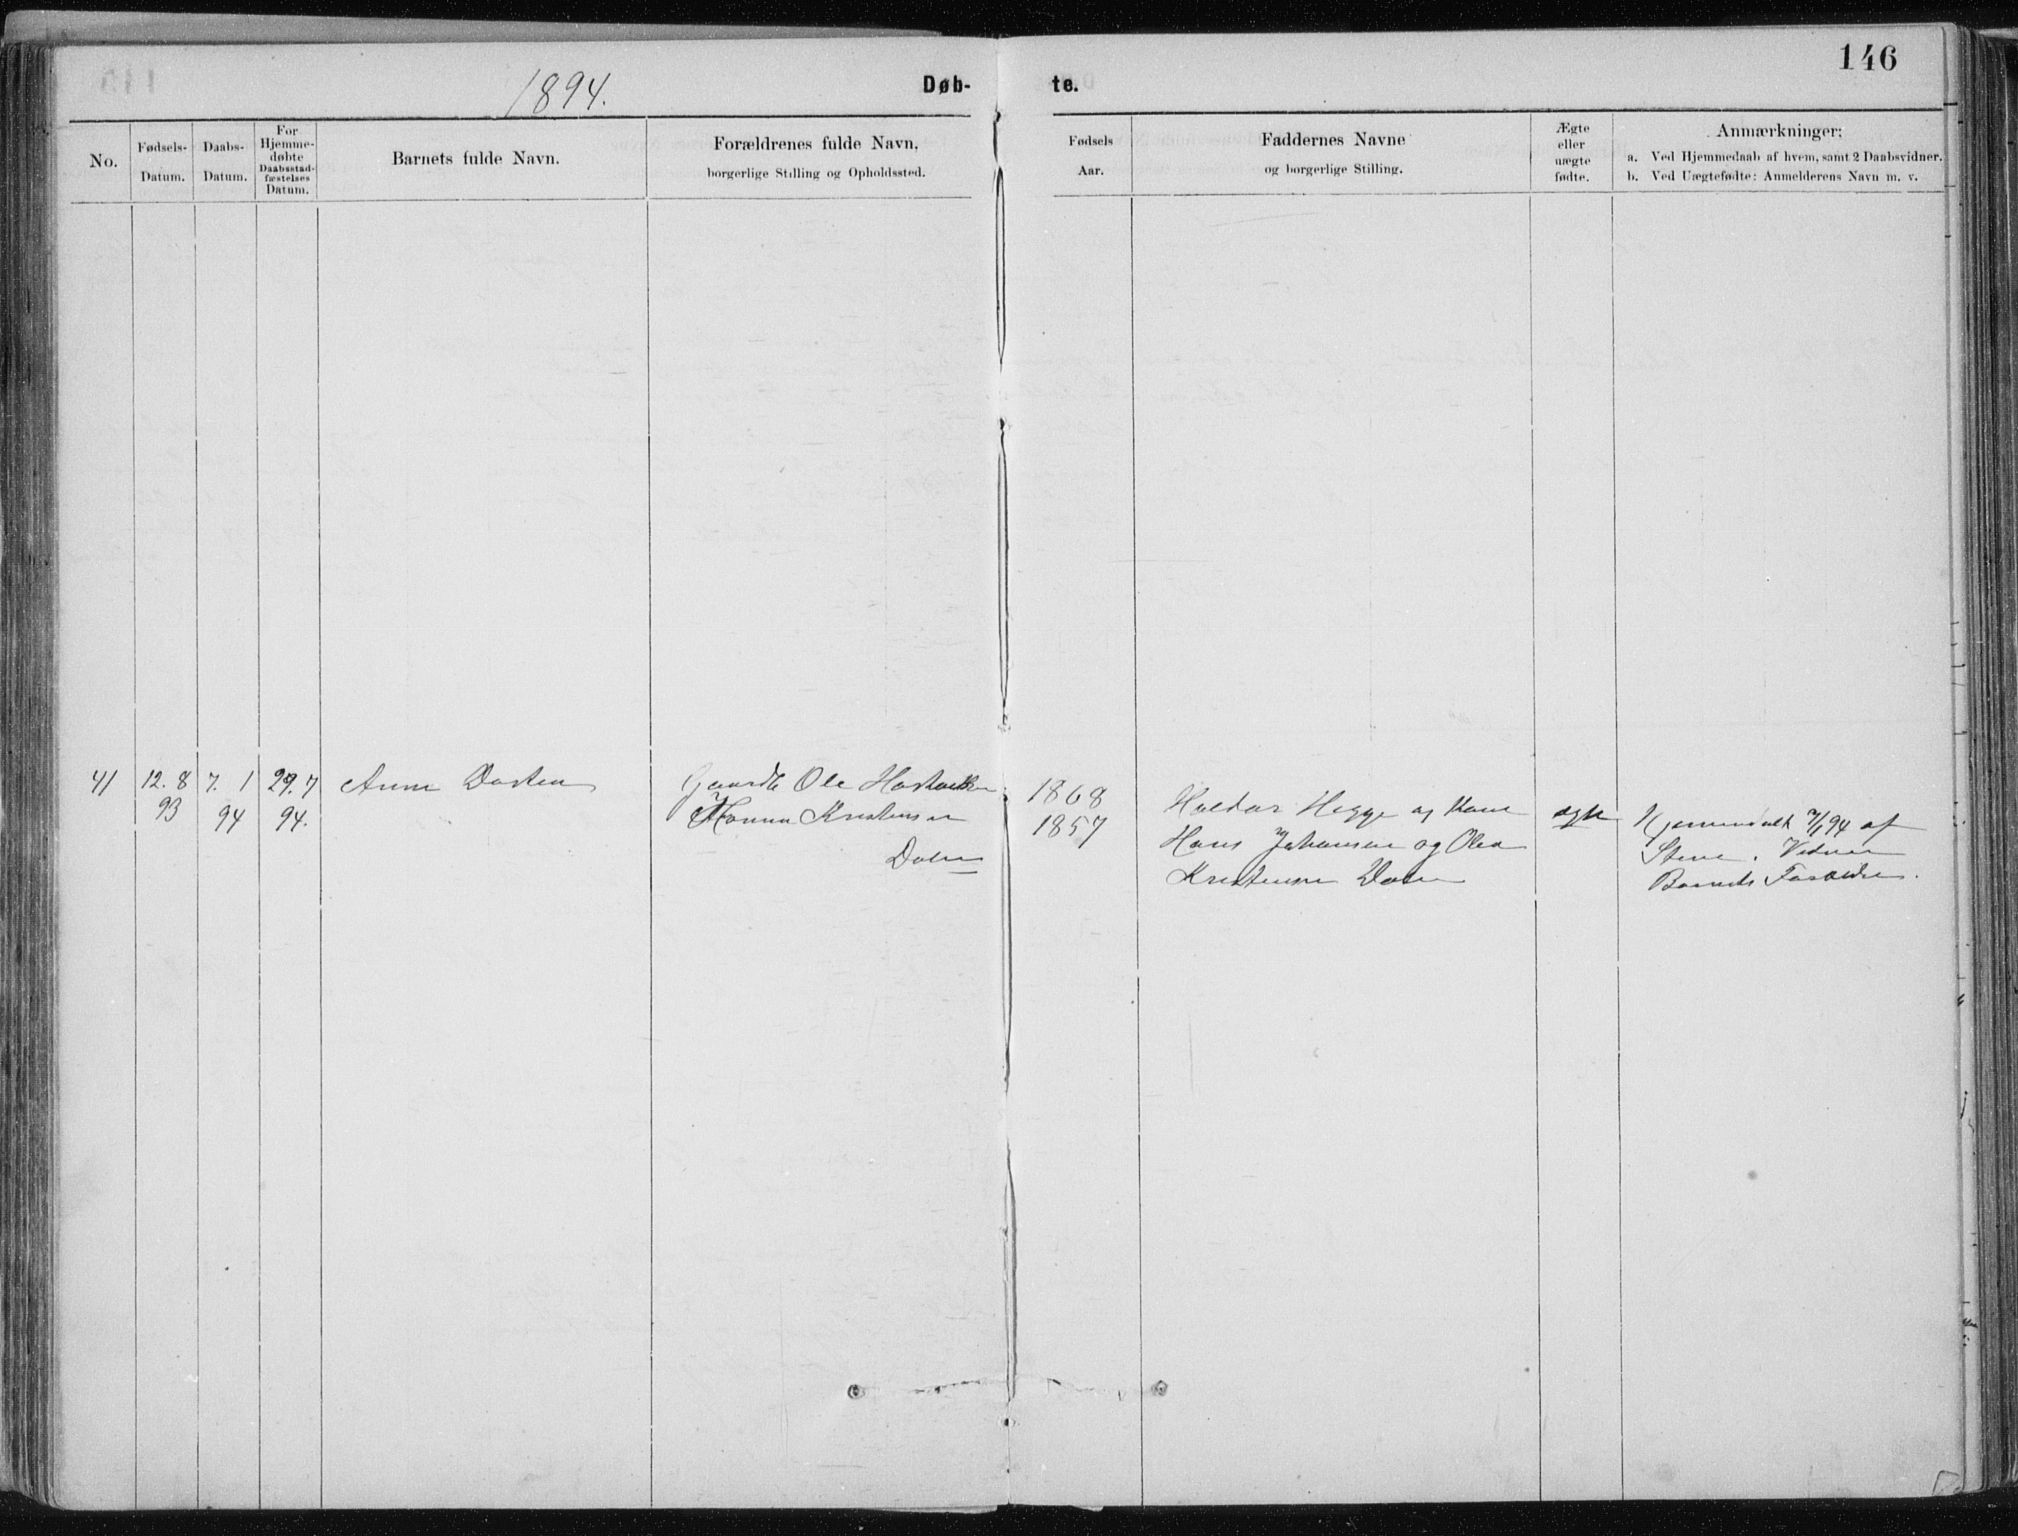 146
1894.
Døb-
te.
No.
Fødsels-
Datum.
Daabs-
Datum.
For
Hjemme-
døbte
Daabsstad-
fæstelses
Datum.
Barnets fulde Navn.
Forældrenes fulde Navn,
borgerlige Stilling og Opholdssted.
Fødsels
Aar.
Faddernes Navne
og borgerlige Stilling.
Ægte
eller
uægte
fødte.
Anmærkninger:
a. Ved Hjemmedaab af hvem, samt 2 Daabsvidner.
b. Ved Uægtefødte: Anmelderens Navn m. v.
41
12. 8
93
7. 1
94
29. 7
94.
Anne
Ole
Hanna Kristensen
Dalen
1868
1857
Haldor Hegge og Kone
Hans Johansen og Olea
Kristensen Dalen
ægte
Hjemmedøbt 7/1 94 af
Stene. Vidner
Barnets Forældre.